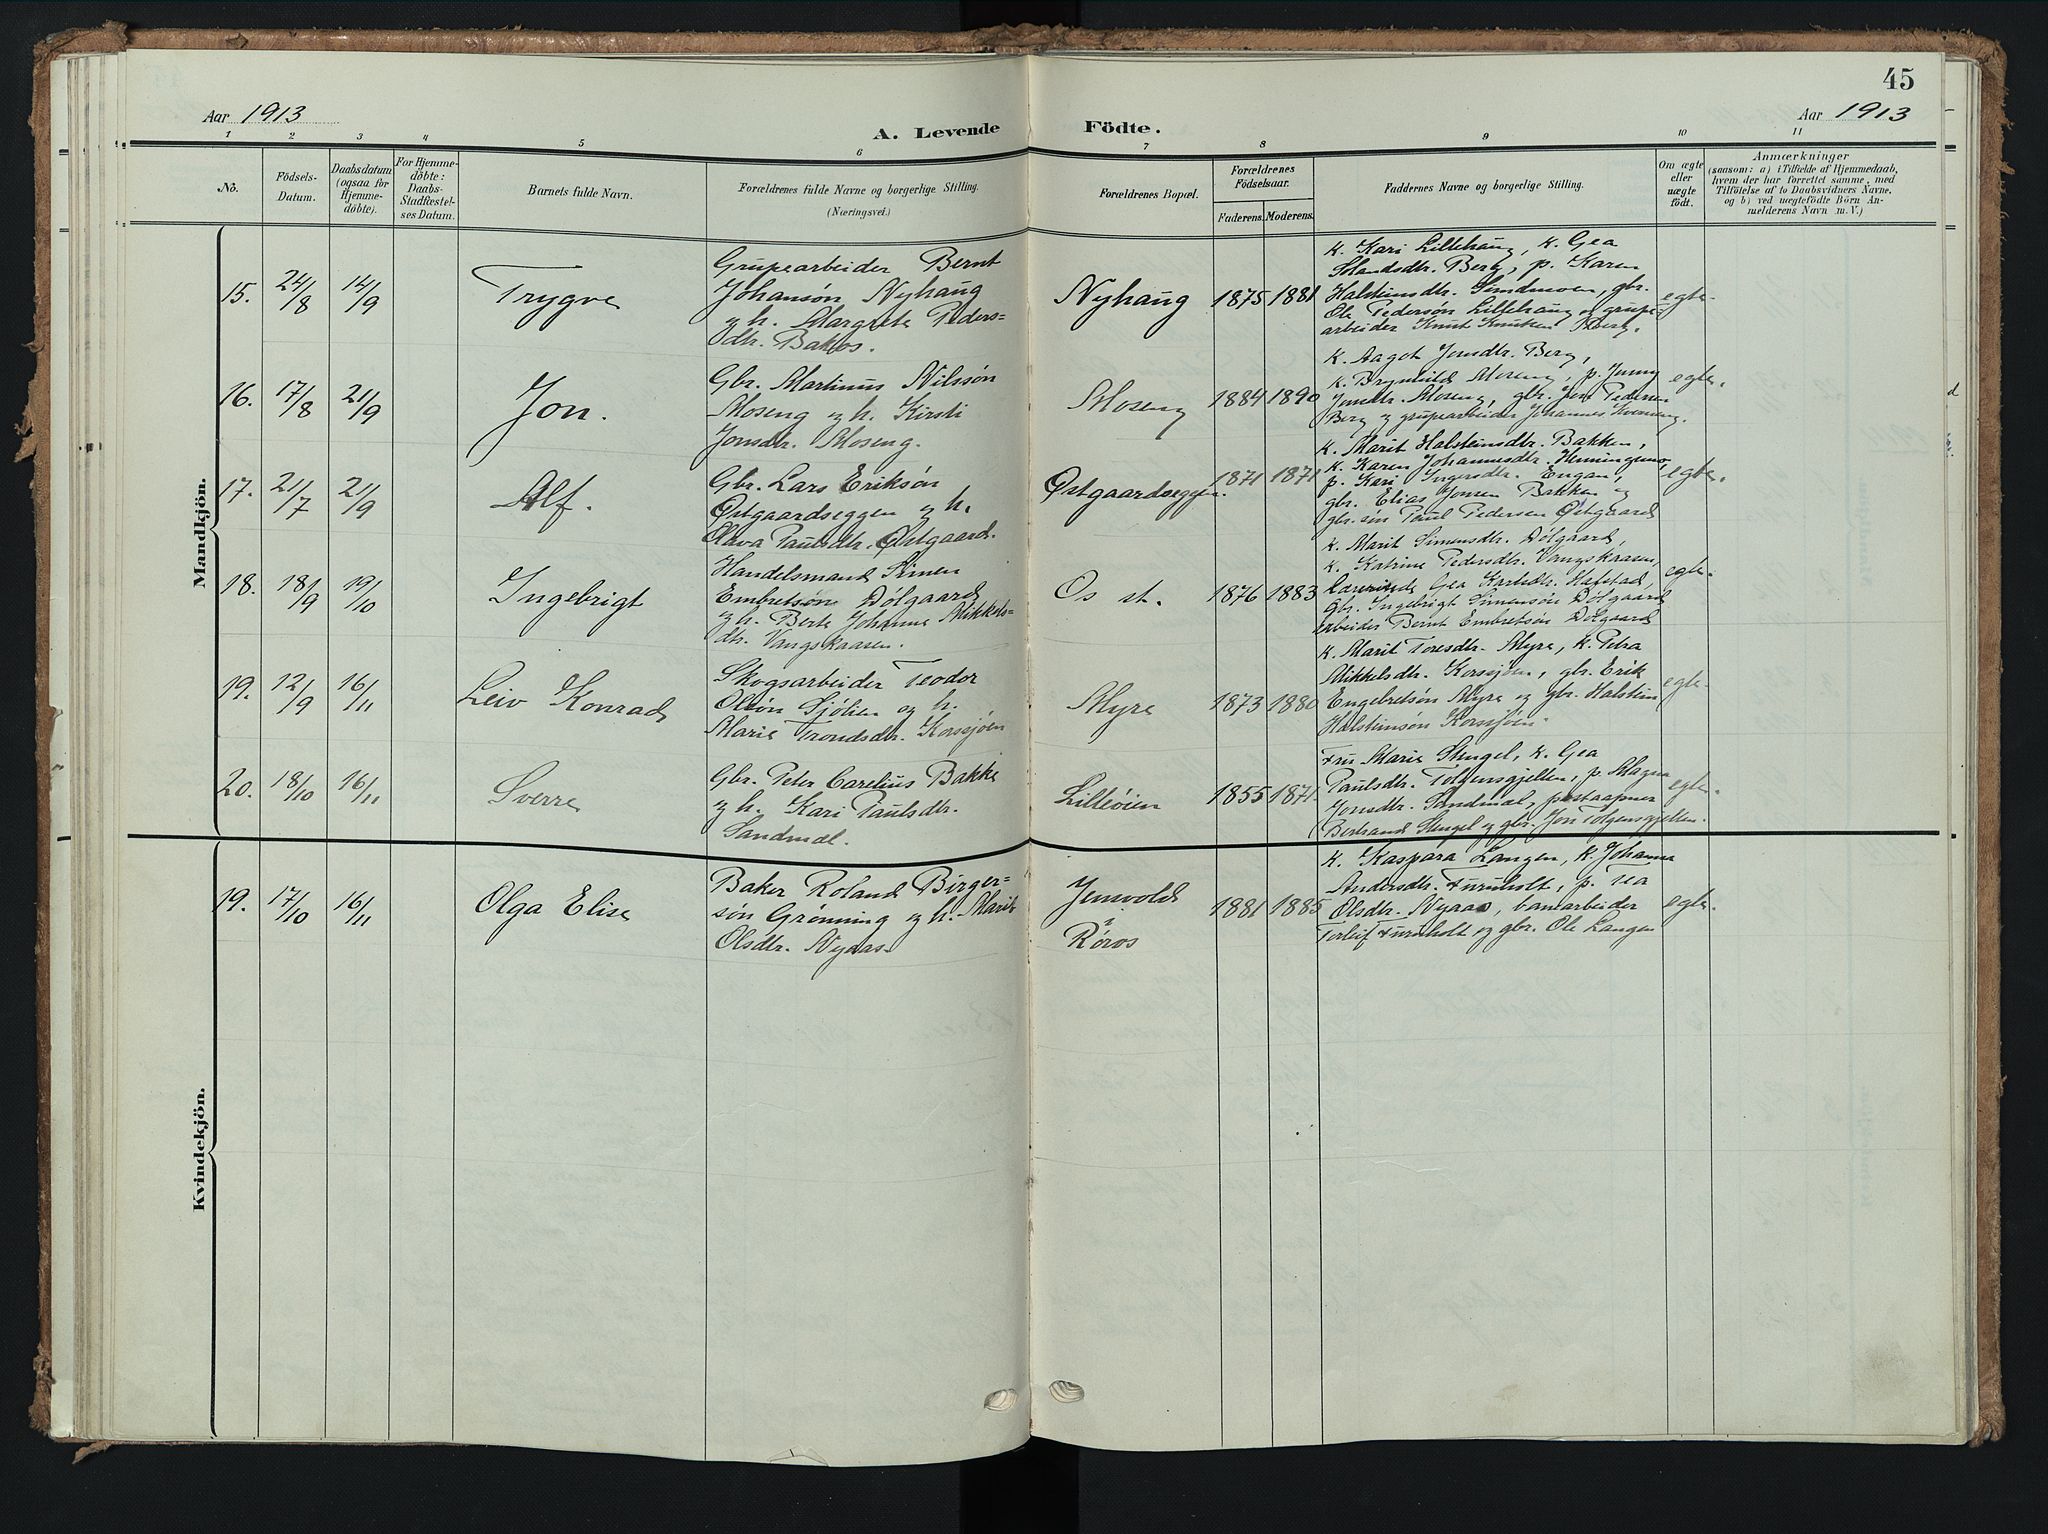 45
Aar 1913
A. Levende Födte.
Aar 1913
1 2 3 4 5 6 7 8 9 10 11
No.
Födsels-
Datum.
Daabsdatum
(ogsaa for
Hjemme-
döbte).
For Hjemme-
döbte:
Daabs-
Stadfestel-
ses Datum.
Barnets fulde Navn.
Forældrenes fulde Navne og borgerlige Stilling.
(Næringsvei.)
Forældrenes Bopæl.
Forældrenes
Födselsaar.
Faderens.
Moderens.
Faddernes Navne og borgerlige Stilling.
Om ægte
eller
uægte
født.
Anmærkninger
(saasom: a) i Tilfælde af Hjemmedaab,
hvem der har forrettet samme, med
Tilföielse af to Daabsvidners Navne,
og b) ved uægtefödte Börn An-
melderens Navn m. V.)
Mandkjön.
15. 24/8 14/9 Trygve
Grupearbeider Bernt
Johansøn Nyhaug
og h. Margrete Peders=
dtr. Bakos.
Nyhaug 1875 1881
K. Kari Lillehaug, K. Gea
Berg, p. Karen
Halsteinsdtr. Sundmoen, gbr.
Ole Pedersøn Lillehaug og grupe-
arbeider Knut Knutsen Berg.
egte.
16. 17/8 21/9 Jon.
Gbr. Martinus Nilssøn
Moseng og h. Kirsti
Jonsdtr. Moseng.
Moseng 1884 1890
K. Aagot Jonsdtr. Berg,
K. Brynhild Moseng, p. Jenny
Jonsdtr. Moseng, gbr. Jon Pedersen
Berg og grupearbeider Johannes Kverneng.
egte.
17. 21/7 21/9 Alf.
Gbr. Lars Eriksøn
Østgaardseggen og h.
Olava Paulsdtr. Østgaard.
Østgaardseggen. 1871 1871
K. Marit Halsteinsdtr. Bakken,
K. Karen Johannesdtr. Henningsmo,
p. Kari Ingersdtr. Engan,
gbr. Elias Jonsen Bakken og
gbr. søn Paul Pedersen Østgaard
egte.
18. 18/9 19/10 Ingebrigt
Handelsmand Simen
Embretsøn Dølgaard
og h. Berte Johanne Mikkels=
dtr. Vangskaasen.
Os st. 1876 1883
K. Marit Simensdtr. Dølgaard,
K. Katrine Pedersdtr. Vangskaasen,
Lærerinde Gea Karlsdtr. Hafstad,
Gbr. Ingebrigt Simensøn Dølgaard
arbeider Bernt Embretsøn Dølgaard
egte.
19. 12/9 16/11 Leiv Konrad
Skogsarbeider Teodor
Olsøn Sjølien og h.
Marie Trondsdtr. Korssjøen
Myre 1873 1880
K. Marit Toresdtr. Myre, K. Petra
Mikkelsdtr. Korssjøen, gbr. Erik
Engebretsøn Myre og gbr. Halstein
Halsteinsøn Korssjøen.
egte.
20. 18/10 16/11 Sverre
Gbr. Peter Carelius Bakke
og h. Kari Paulsdtr.
Sandmæl.
Lilleøien 1855 1871.
Fru Marie Stengel, K. Gea
Paulsdtr. Tolgensgjelten, p. Magna
Jonsdtr. Sandmæl, postaapner
Bertrand Stengel og gbr. Jon Tolgensgjelten.
egte.
Kvindekjön.
19. 17/10 16/11 Olga Elise
Baker Roland Birger=
søn Grønning og h. Marit
Olsdtr. Nyaas.
Jensvold
i
Røros
1881 1885
K. Kaspara Langen, K. Johanna
Andersdtr. Furuholt, p. Tea
Olsdtr. Nyaas, banearbeider
Torleif Furuholt og gbr. Ole Langen
egte.